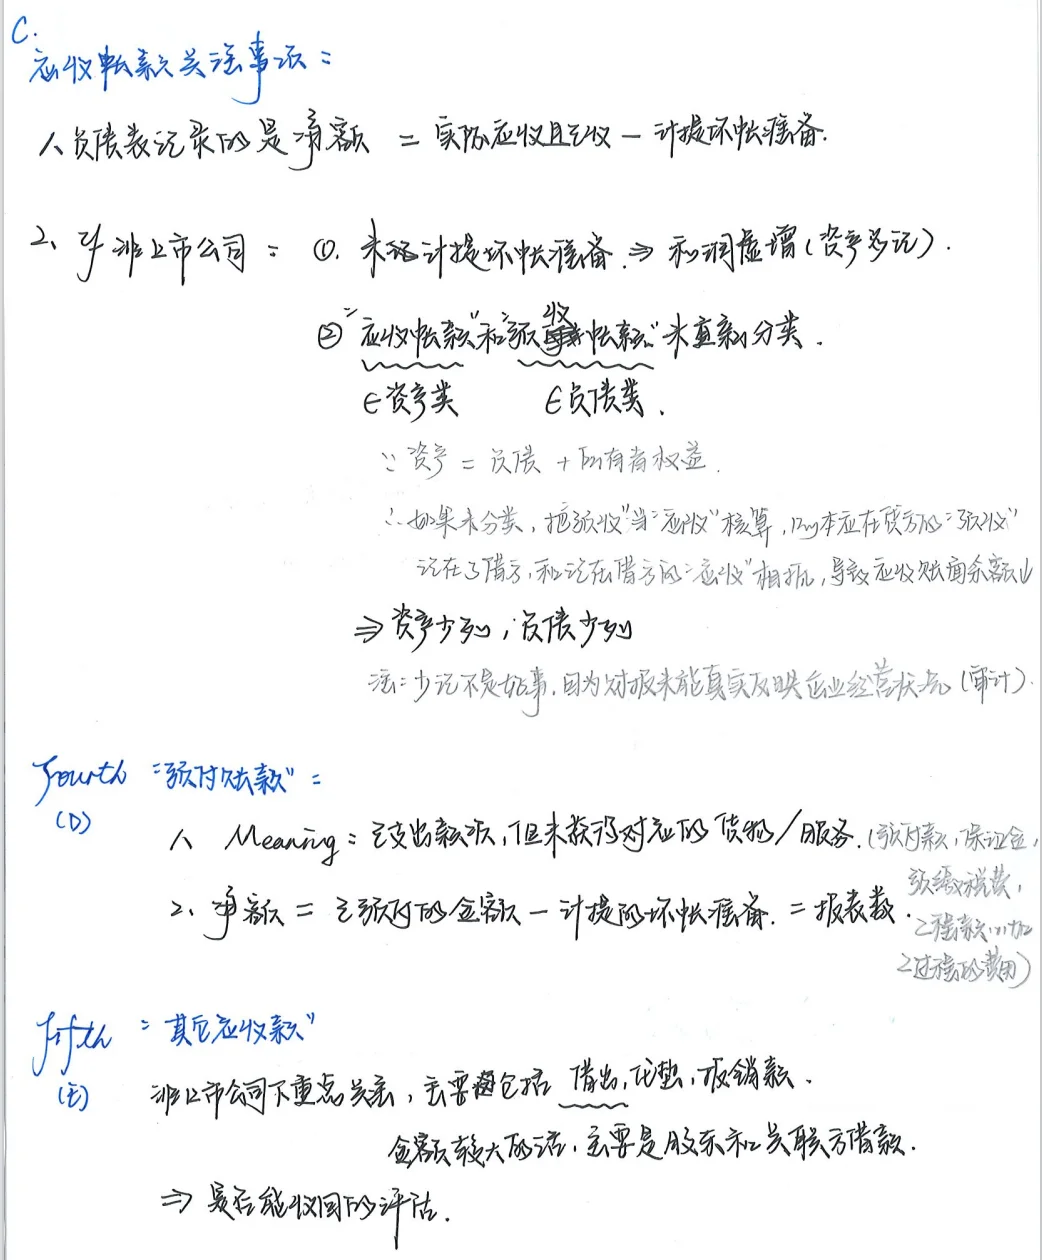 C.
应收帐款关注事项：
1、负债表记录的是净额 = 实际应收且已收 — 计提坏帐准备.
2、对非上市公司： ①. 未计提坏帐准备. ⇒ 利润虚增(资产多记).
②“应收帐款”和“预收帐款”未重新分类.
∈资产类 ∈负债类.
∵ 资产 = 负债 + 所有者权益.
∴ 如果未分类, 把“预收”当“应收”核算, 则本应在贷方的“预收”
记在了借方, 和记在借方的“应收”相抵, 导致应收账面余额↓
⇒ 资产少列, 负债少列
注: 少记不是好事, 因为财报未能真实反映企业经营状况 (审计).
Fourth “预付账款”：
(D)
1、 Meaning: 已支出款项, 但未获得对应的货物/服务. (预付款, 保证金,
预缴税款,
2、净额 = 已预付的金额 — 计提的坏帐准备. = 报表数.
工程款
过程的费用)
fifth “其它应收款”
(E)
非上市公司下重点关注, 主要包括 借出, 代垫, 报销款.
金额较大的话, 主要是股东和关联方借款.
⇒ 是否能收回的评估.